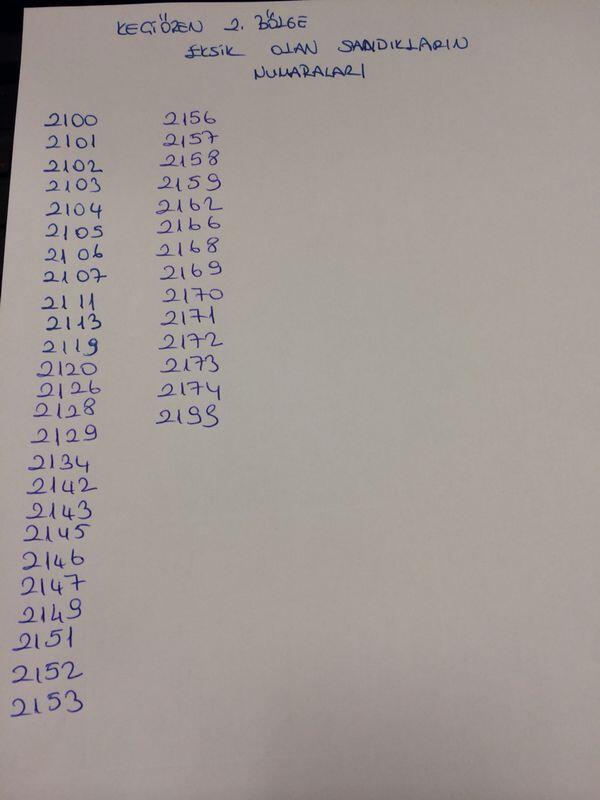 KEÇİÖREN 2. BÖLGE
EKSİK OLAN SANDIKLARIN
NUMARALARI
2100
2101
2102
2103
2104
2105
2106
2107
2111
2113
2119
2120
2126
2128
2129
2134
2142
2143
2145
2146
2147
2149
2151
2152
2153
2156
2157
2158
2159
2162
2166
2168
2169
2170
2171
2172
2173
2174